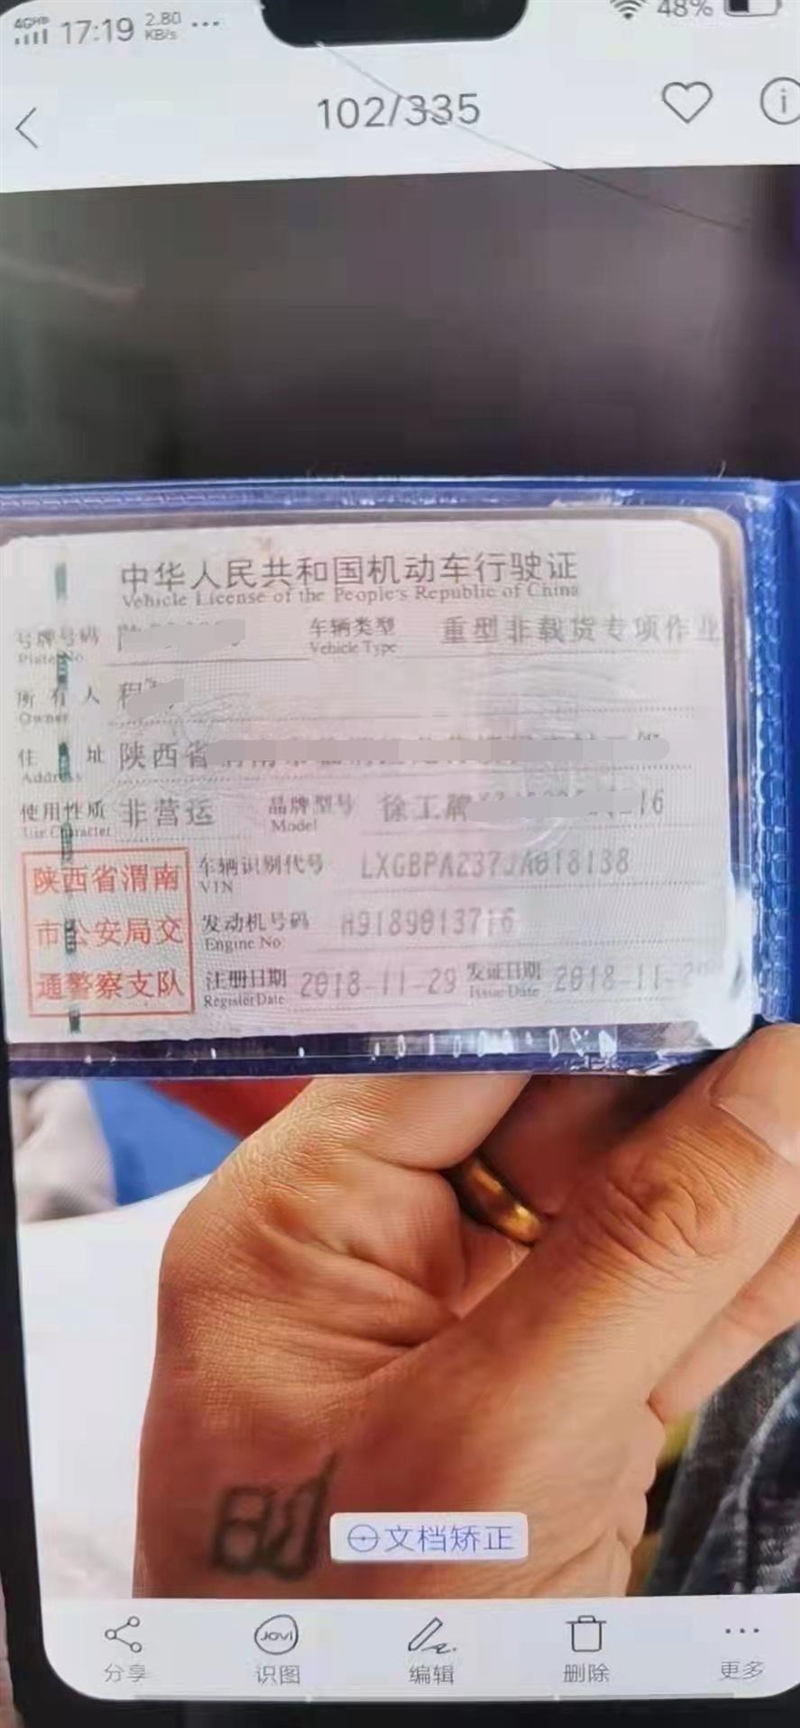 4GHD 17:19 2.80 KB/s ... 48%
102/335
中华人民共和国机动车行驶证
Vehicle License of the People's Republic of China
号牌号码 车辆类型 重型非载货专项作业
Plate No. Vehicle Type
所有人 程
Owner
住址 陕西省
Address
使用性质 非营运 品牌型号 徐工牌 16
Use Character Model
陕西省渭南 车辆识别代号 LXGBPA237JA018138
VIN
市公安局交 发动机号码 H9189013716
Engine No
通警察支队 注册日期 2018-11-29 发证日期 2018-11-2
Register Date Issue Date
文档矫正
JOVI
分享 识图 编辑 删除 更多